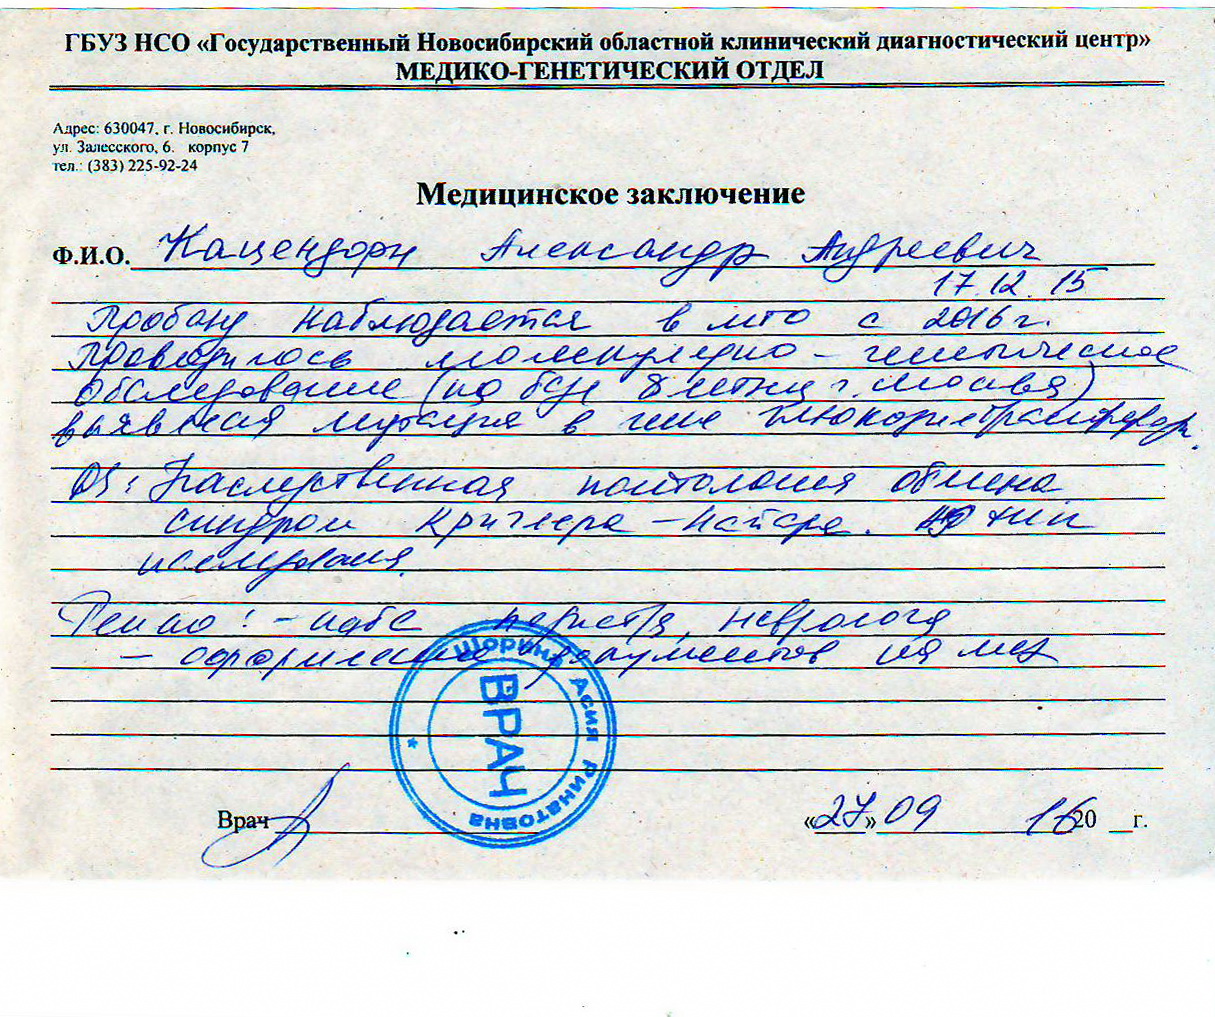 ГБУЗ НСО «Государственный Новосибирский областной клинический диагностический центр»
МЕДИКО-ГЕНЕТИЧЕСКИЙ ОТДЕЛ
Адрес: 630047, г. Новосибирск,
ул. Залесского, 6. корпус 7
тел.: (383) 225-92-24
Медицинское заключение
Ф.И.О. Кацендорн Александр Андреевич
17.12.15
Пробанд наблюдается в мго с 2016 г.
Проводилось молекулярно-генетическое
обследование (на базе г. Москва)
выявлена мутация в гене
DS: Наследственная патология обмена
синдром Криглера-Найяра. тип
исследования.
Реком: - набл педиатра, невролога
- оформление документов на мсэ
Шорина Асия Ринатовна
ВРАЧ
Врач «27» 09 16 20 г.